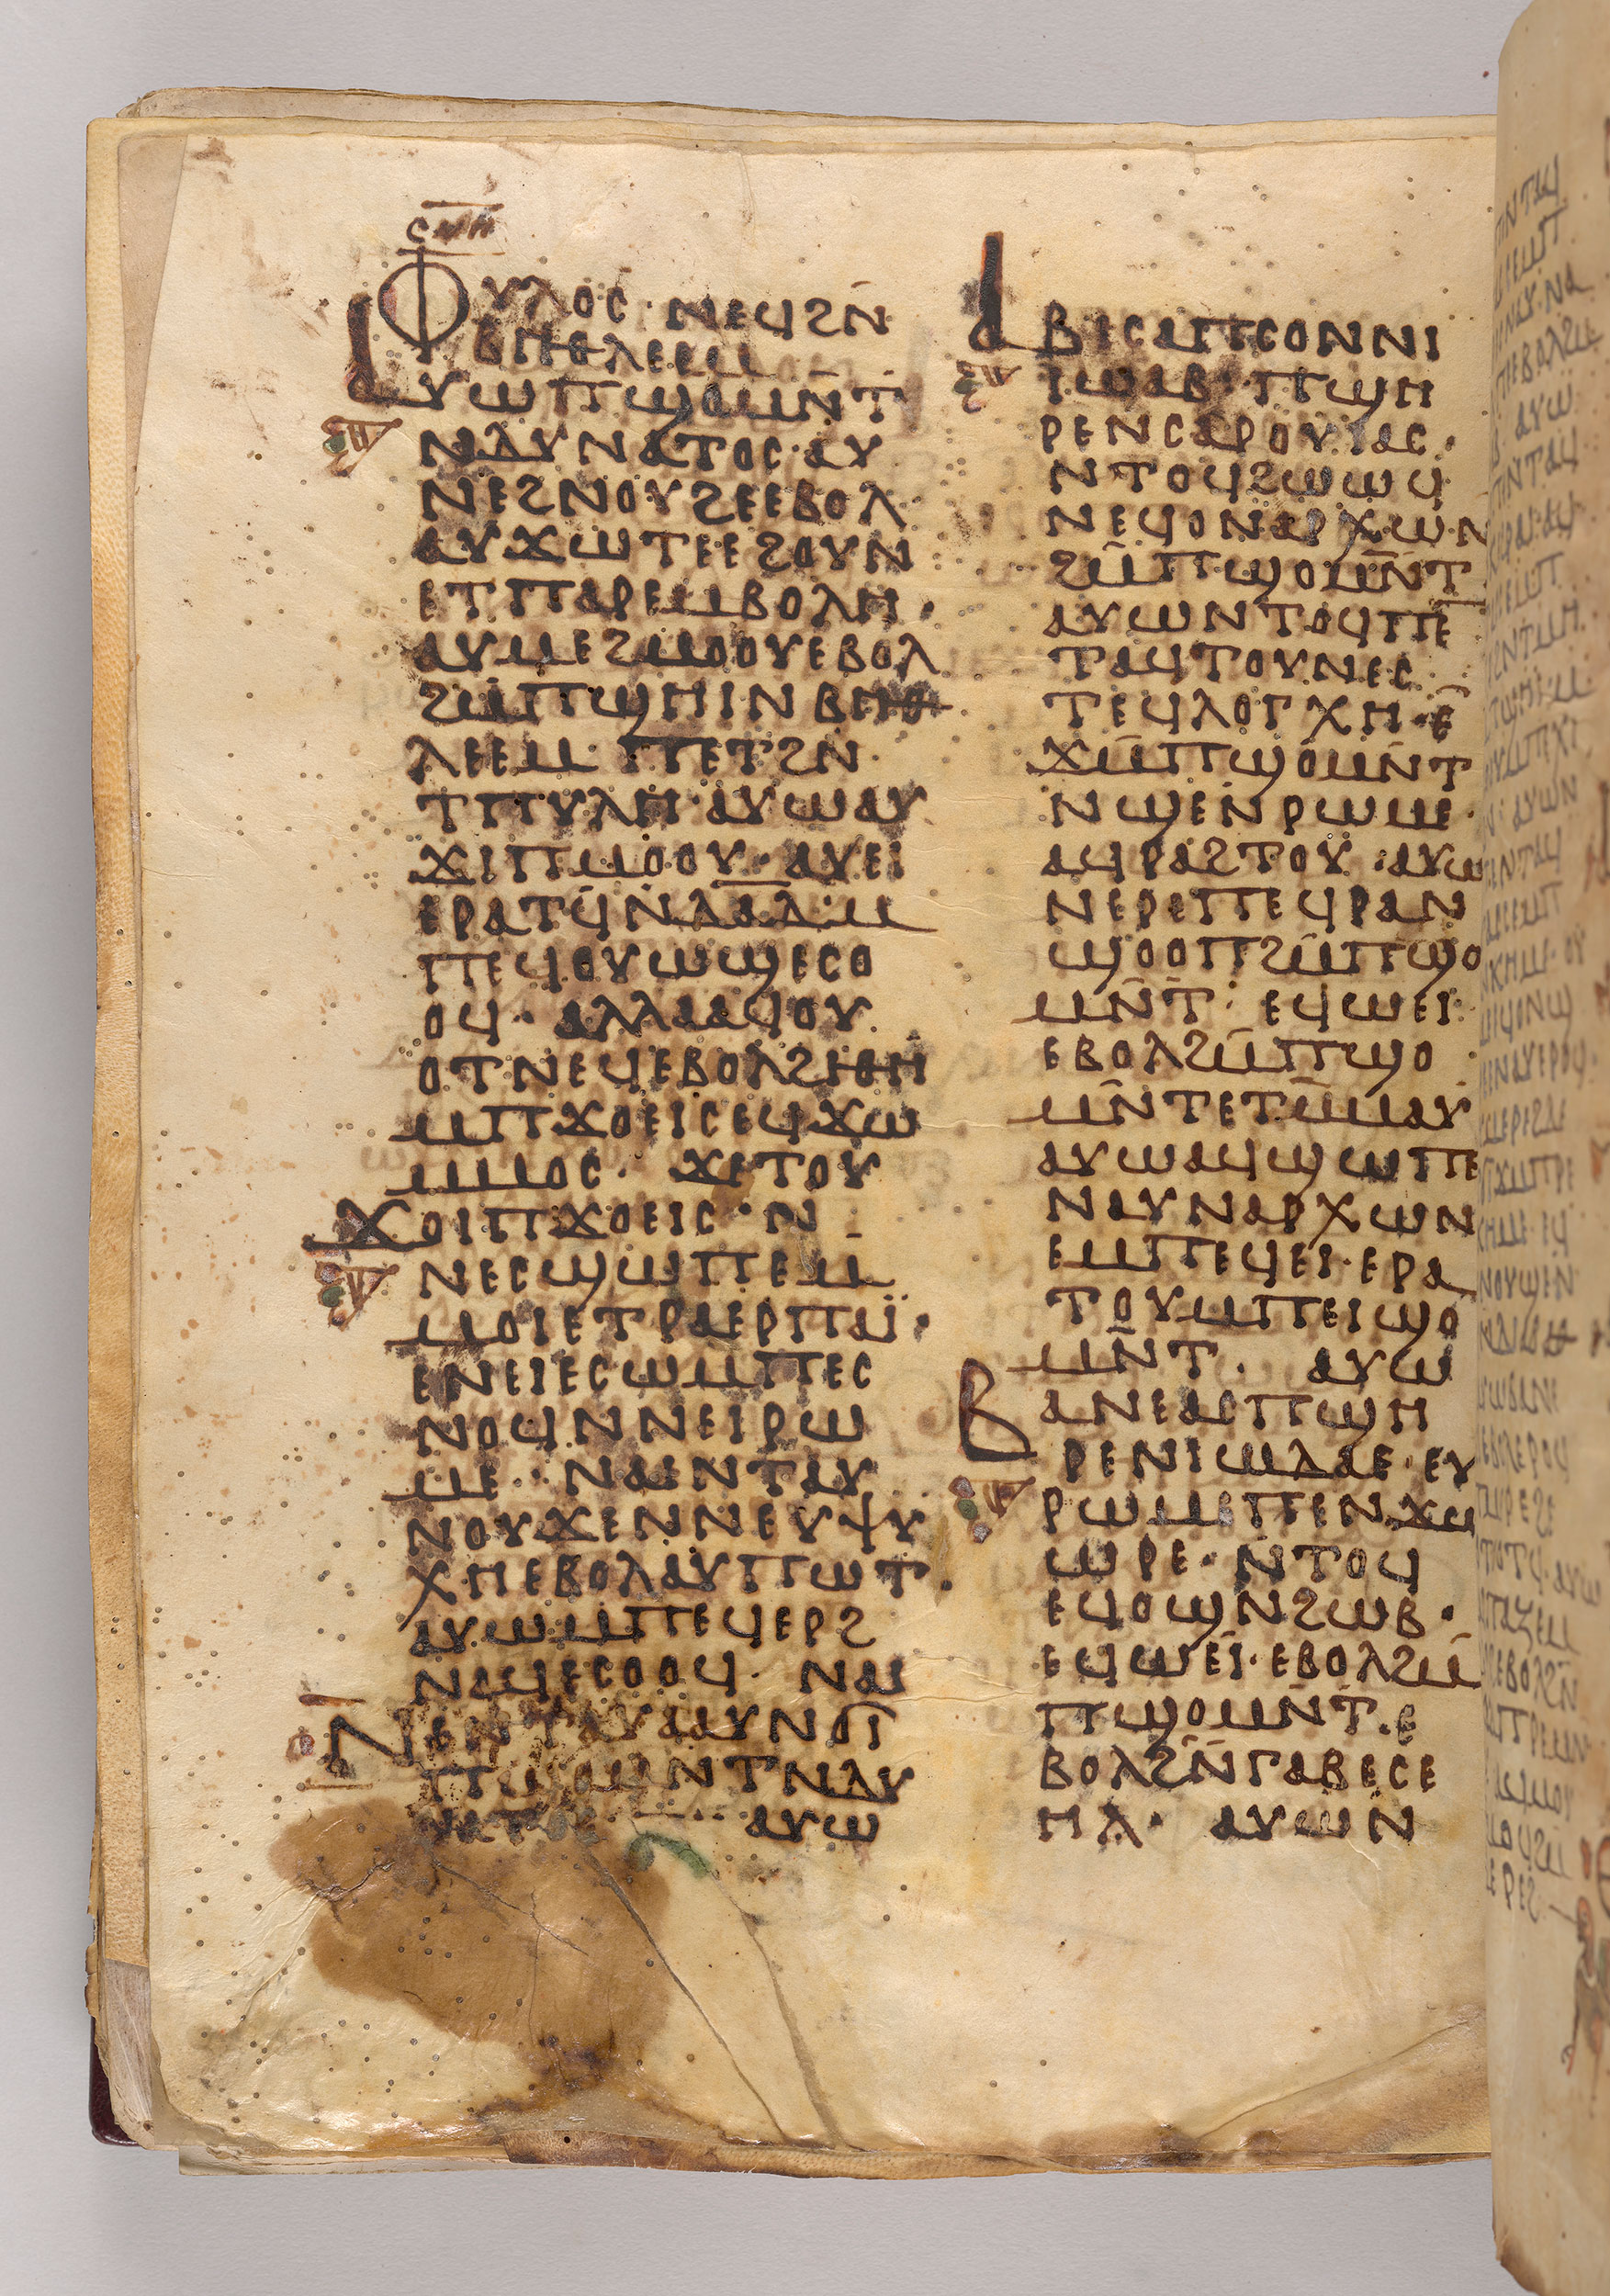 ⲥⲙⲏ
ⲫⲩⲗⲟⲥ· ⲛⲉϥϩⲛ̄
ⲃⲏⲑⲗⲉⲉⲙ
ⲁⲩⲱⲡϣⲟⲙⲛ̄ⲧ
ⲛⲇⲩⲛⲁⲧⲟⲥ·ⲁⲩ
ⲛⲉϩⲛⲟⲩϩⲉⲉⲃⲟⲗ
ⲁⲩϫⲱⲧⲉⲉϩⲟⲩⲛ
ⲉⲧⲡⲁⲣⲉⲙⲃⲟⲗⲏ·
ⲁⲩⲙⲉϩⲙⲟⲟⲩⲉⲃⲟⲗ
ϩⲙ̄ⲡϣⲏⲓⲛⲃⲏⲑ
ⲗⲉⲉⲙ· ⲡⲉⲧϩⲛ̄
ⲧⲡⲩⲗⲏ·ⲁⲩⲱⲁⲩ
ϫⲓⲡⲙⲟⲟⲩ·ⲁⲩⲉⲓ
ⲉⲣⲁⲧϥⲛ̄ⲇⲁⲇ·ⲙ
ⲡⲉϥⲟⲩⲱϣⲉⲥⲟ
ⲟϥ· ⲁⲗⲗⲁⲁϥⲟⲩ
ⲟⲧⲛⲉϥⲉⲃⲟⲗϩⲓⲑⲏ
ⲙⲡϫⲟⲉⲓⲥⲉϥϫⲱ
ⲙⲙⲟⲥ· ϫⲉⲧⲟⲩ
ϫⲟⲓⲡϫⲟⲉⲓⲥ·ⲛ
ⲛⲉⲥϣⲱⲡⲉⲙ̄
ⲙⲟⲓⲉⲧⲣⲁⲉⲣⲡⲁⲓ̈·
ⲉⲛⲉⲓⲉⲥⲱⲙⲡⲉⲥ
ⲛⲟϥⲛⲛⲉⲓⲣⲱ
ⲙⲉ· ⲛⲁⲓⲛⲧⲁⲩ
ⲛⲟⲩϫⲉⲛⲛⲉⲩⲯⲩ
ⲭⲏⲉⲃⲟⲗⲁⲩⲡⲱⲧ·
ⲁⲩⲱⲙⲡⲉϥⲉⲣϩ
ⲛⲁϥⲉⲥⲟⲟϥ· ⲛⲁⲓ
ⲛⲉⲛⲧⲁⲩⲁⲁⲩⲛϭⲓ
ⲡϣⲟⲙⲛⲧⲛⲇⲩ
ⲛⲁⲧⲟⲥ ⲁⲩⲱ
ⲁⲃⲓⲥⲁⲡⲥⲟⲛⲛⲓ
ⲓⲱⲁⲃ· ⲡϣⲏ
ⲣⲉⲛⲥⲁⲣⲟⲩⲓⲁⲥ·
ⲛⲧⲟϥϩⲱⲱϥ·
ⲛⲉϥⲟⲛⲁⲣⲭⲱⲛ
ϩⲙ̄ⲡϣⲟⲙⲛ̄ⲧ
ⲁⲩⲱⲛⲧⲟϥⲡⲉ
ⲧⲁϥⲧⲟⲩⲛⲉⲥ
ⲧⲉϥⲗⲟⲅⲭⲏ·ⲉ̄
ϫⲙ̄ⲡϣⲟⲙⲛ̄ⲧ
ⲛϣⲉⲛⲣⲱⲙⲉ·
ⲁϥⲣⲁϩⲧⲟⲩ·ⲁⲩⲱ
ⲛⲉⲣⲉⲡⲉϥⲣⲁⲛ
ϣⲟⲟⲡϩⲙ̄ⲡϣⲟ
ⲙⲛ̄ⲧ· ⲉϥⲱⲉⲓ
ⲉⲃⲟⲗϩⲙ̄ⲡϣⲟ
ⲙⲛ̄ⲧⲉⲧⲙ̄ⲙⲁⲩ
ⲁⲩⲱⲁϥϣⲱⲡⲉ
ⲛⲁⲩⲛⲁⲣⲭⲱⲛ
ⲉⲙⲡⲉϥⲉⲓ·ⲉⲣⲁ
ⲧⲟⲩⲙⲡⲉⲓϣⲟ
ⲙⲛ̄ⲧ· ⲁⲩⲱ
ⲃⲁⲛⲉⲁⲥⲡϣⲏ
ⲣⲉⲛⲓⲱⲇⲁⲉ·ⲉⲩ
ⲣⲱⲙⲉⲡⲉⲛϫⲱ
ⲱⲣⲉ·ⲛⲧⲟϥ
ⲉϥⲟϣⲛ̇ϩⲱⲃ·
ⲉϥⲱⲉⲓ·ⲉⲃⲟⲗϩⲙ̄
ⲡϣⲟⲙⲛ̄ⲧ·ⲉ
ⲃⲟⲗϩⲛ̄ⲅⲁⲃⲉⲥⲉ
ⲏⲗ· ⲁⲩⲱⲛ